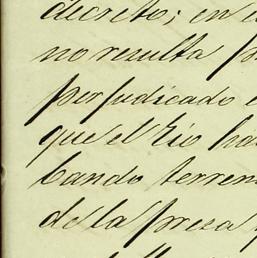 decreto; en
no resulta
perjudicado
que el Rio ha
bando terren
de la presa